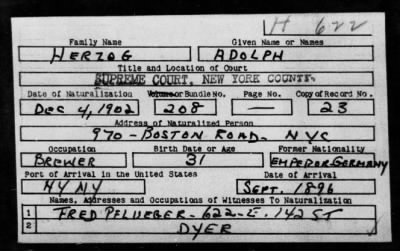 H 622
Family Name Given Name or Names
HERZOG ADOLPH
Title and Location of Court
SUPREME COURT, NEW YORK COUNTY.
Date of Naturalization Volume or Bundle No. Page No. Copy of Record No.
DEC 4, 1902 208 — 23
Address of Naturalized Person
970 - BOSTON ROAD - NYC
Occupation Birth Date or Age Former Nationality
BREWER 31 EMPEROR-GERMANY
Port of Arrival in the United States Date of Arrival
NY NY SEPT. 1896
Names, Addresses and Occupations of Witnesses To Naturalization
1 FRED PFLUEGER - 622 - E. 142 ST
2 DYER